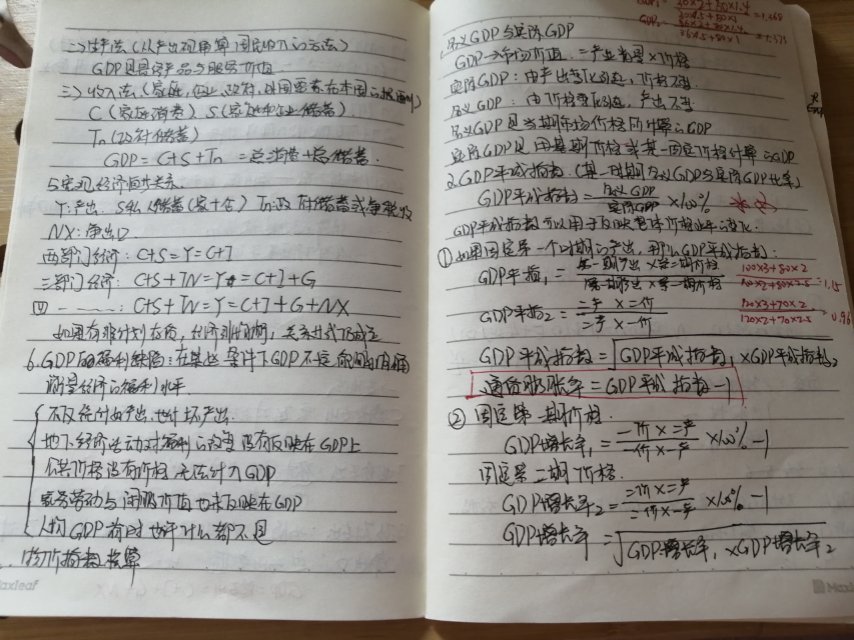 二)生产法(从产出的角度算国民收入的方法)
GDP是最终产品与服务价值
三)收入法(家庭,企业,政府,
C(家庭消费) S(家庭和企业储蓄)
Tn(政府储蓄)
GDP = C+S+Tn = 总消费+总储蓄.
5.宏观经济恒等关系.
Y:产出. S私人储蓄(家+企) Tn政府储蓄或争税收
NX:净出口
两部门经济: C+S=Y=C+I
三部门经济: C+S+TN=Y=C+I+G
四------: C+S+TN=Y=C+I+G+NX
如果有非计划存货,经济非均衡,关系式不成立
6.GDP的福利缺陷:在某些条件下GDP不是 准确
衡量经济的福利水平
不仅统计好产出.也计坏产出.
地下经济活动对福利的改善没有反映在GDP上
没有价格 无法计入GDP
家务劳动与闲暇价值也未反映在GDP
人均GDP有时也许什么都不是
物价指数核算
名义GDP与实际GDP
GDP→市场价值. =产出数量×价格
实际GDP:由产出变化引起,价格不变.
名义GDP:由价格变化引起,产出不变
名义GDP是当期市场价格所计算的GDP
实际GDP是用基期价格或某一固定价格计算的GDP
2.GDP平减指数(某一时期名义GDP与实际GDP比率)
GDP平减指数 = 名义GDP/实际GDP ×100%
GDP平减指数可以用于反映整体价格水平的变化.
①如果固定第一个时期的产出,那么GDP平减指数:
GDP平指1 = 第一期产出×第二期价格/第一期产出×第一期价格 100×3+80×2/100×2+80×2.5=1.15
GDP平指2 = 二产×二价/二产×一价 120×3+70×2/120×2+70×2.5 0.96
GDP平减指数 = √GDP平减指数1×GDP平减指数2
通货膨胀率 = GDP平减指数-1
②固定第一期价格.
GDP增长率1 = 一价×二产/一价×一产 ×100%-1
固定第二期价格.
GDP增长率2 = 二价×二产/二价×一产 ×100%-1
GDP增长率 = √GDP增长率1×GDP增长率2
Maxleaf